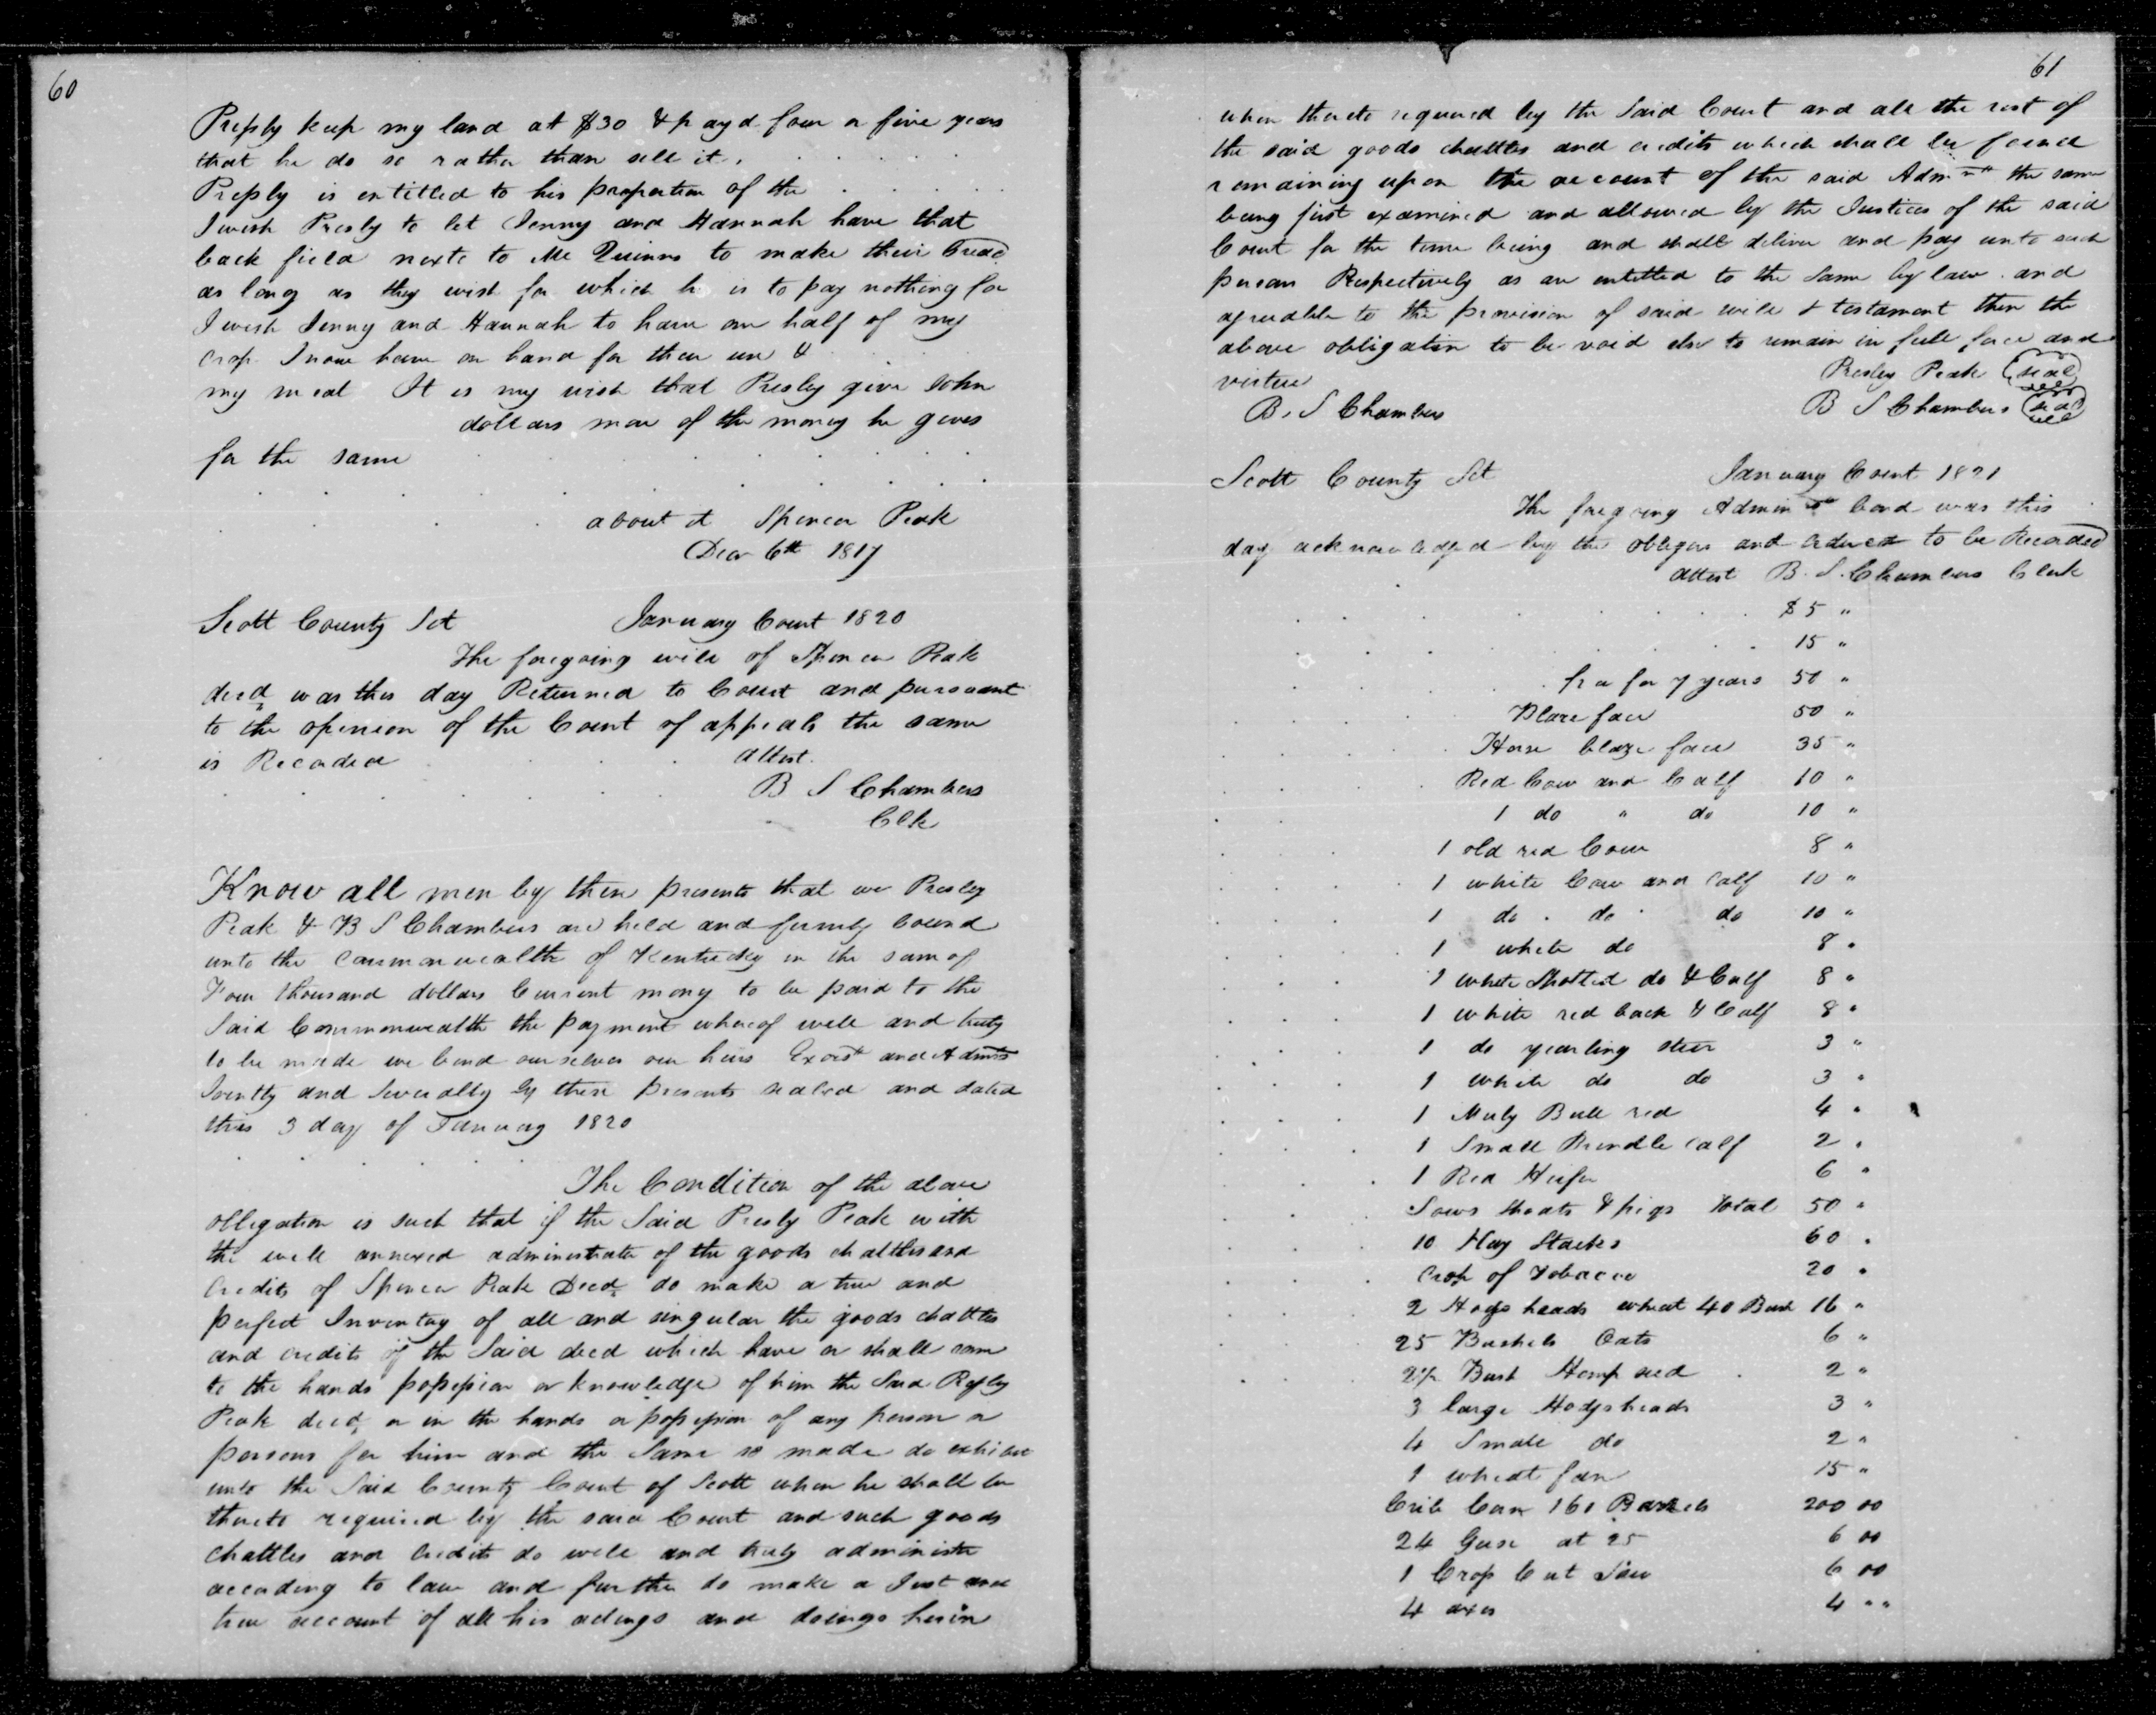 60
Presly keep my land at $30 & payd four or five years
that he do so rather than sell it
Presly is entitled to his proportion of the
I wish Presly to let Jenny and Hannah have that
back field next to Mc Quinns to make their bread
as long as they wish for which he is to pay nothing for
I wish Jenny and Hannah to have one half of my
crop I now have on hand for their use &
my meat It is my wish that Presley give John
dollars more of the money he gives
for the same
about A Spencer Peak
Decr 6th 1817
Scott County Sct January Court 1820
The foregoing will of Spencer Peak
decd was this day Returned to Court and pursuant
to the opinion of the Court of appeals the same
is Recorded attest.
B S Chambers
Clk
Know all men by these presents that we Presley
Peak & B S Chambers are held and firmly bound
unto the Commonwealth of Kentucky in the sum of
Four thousand dollars Current mony to be paid to the
Said Commonwealth the payment whereof well and truly
to be made we bind ourselves our heirs Exors and Admrs
Jointly and Severally by these presents sealed and dated
this 3 day of January 1820
The Condition of the above
obligation is such that if the Said Presly Peak with
the will annexed administrator of the goods chattles and
Credits of Spencer Peak Decd do make a true and
perfect Inventory of all and singular the goods chattles
and credits of the Said decd which have or shall come
to the hands possession or knowledge of him the Said Presley
Peak decd or in the hands or possession of any person or
persons for him and the Same so made do exhibit
unto the Said County Court of Scott when he shall be
thereto required by the said Court and such goods
Chattles and Credits do well and truly administer
according to law and further do make a Just and
true account of all his actings and doings herein
61
when thereto required by the Said Court and all the rest of
the said goods chattles and credits which shall be found
remaining upon the account of the said Admr the same
being first examined and allowed by the Justices of the said
Court for the time being and shall deliver and pay unto such
person Respectively as are entitled to the Same by law and
agreeable to the provision of said will & testament then the
above obligation to be void else to remain in full force and
virtue Presley Peak (seal)
B. S Chambers B S Chambers (seal)
Scott County Sct January Court 1821
The foregoing Adminr bond was this
day acknowledged by the obligors and ordered to be Recorded
attest B. S. Chambers Clerk
$5 "
15 "
for 7 years 50 "
Blaze face 50 "
Horse blaze face 35 "
Red Cow and Calf 10 "
1 do " do 10 "
1 old red Cow 8 "
1 white Cow and Calf 10 "
1 do . do . do 10 "
1 white do 8 "
1 white Spotted do & Calf 8 "
1 white red back & Calf 8 "
1 do yearling steer 3 "
1 white do do 3 "
1 Muly Bull red 4 "
1 Small Brindle calf 2 "
1 Red Heifer 6 "
Sows Shoats & pigs total 50 "
10 Hay Stacks 60 "
Crop of Tobacco 20 "
2 Hogsheads wheat 40 Bush 16 "
25 Bushels Oats 6 "
2½ Bush Hemp seed 2 "
3 large Hodgsheads 3 "
4 Small do 2 "
1 wheat fan 15 "
Crib Corn 160 Barrels 200 00
24 Geese at 25 6 00
1 Crop Cut Saw 6 00
4 axes 4 " "